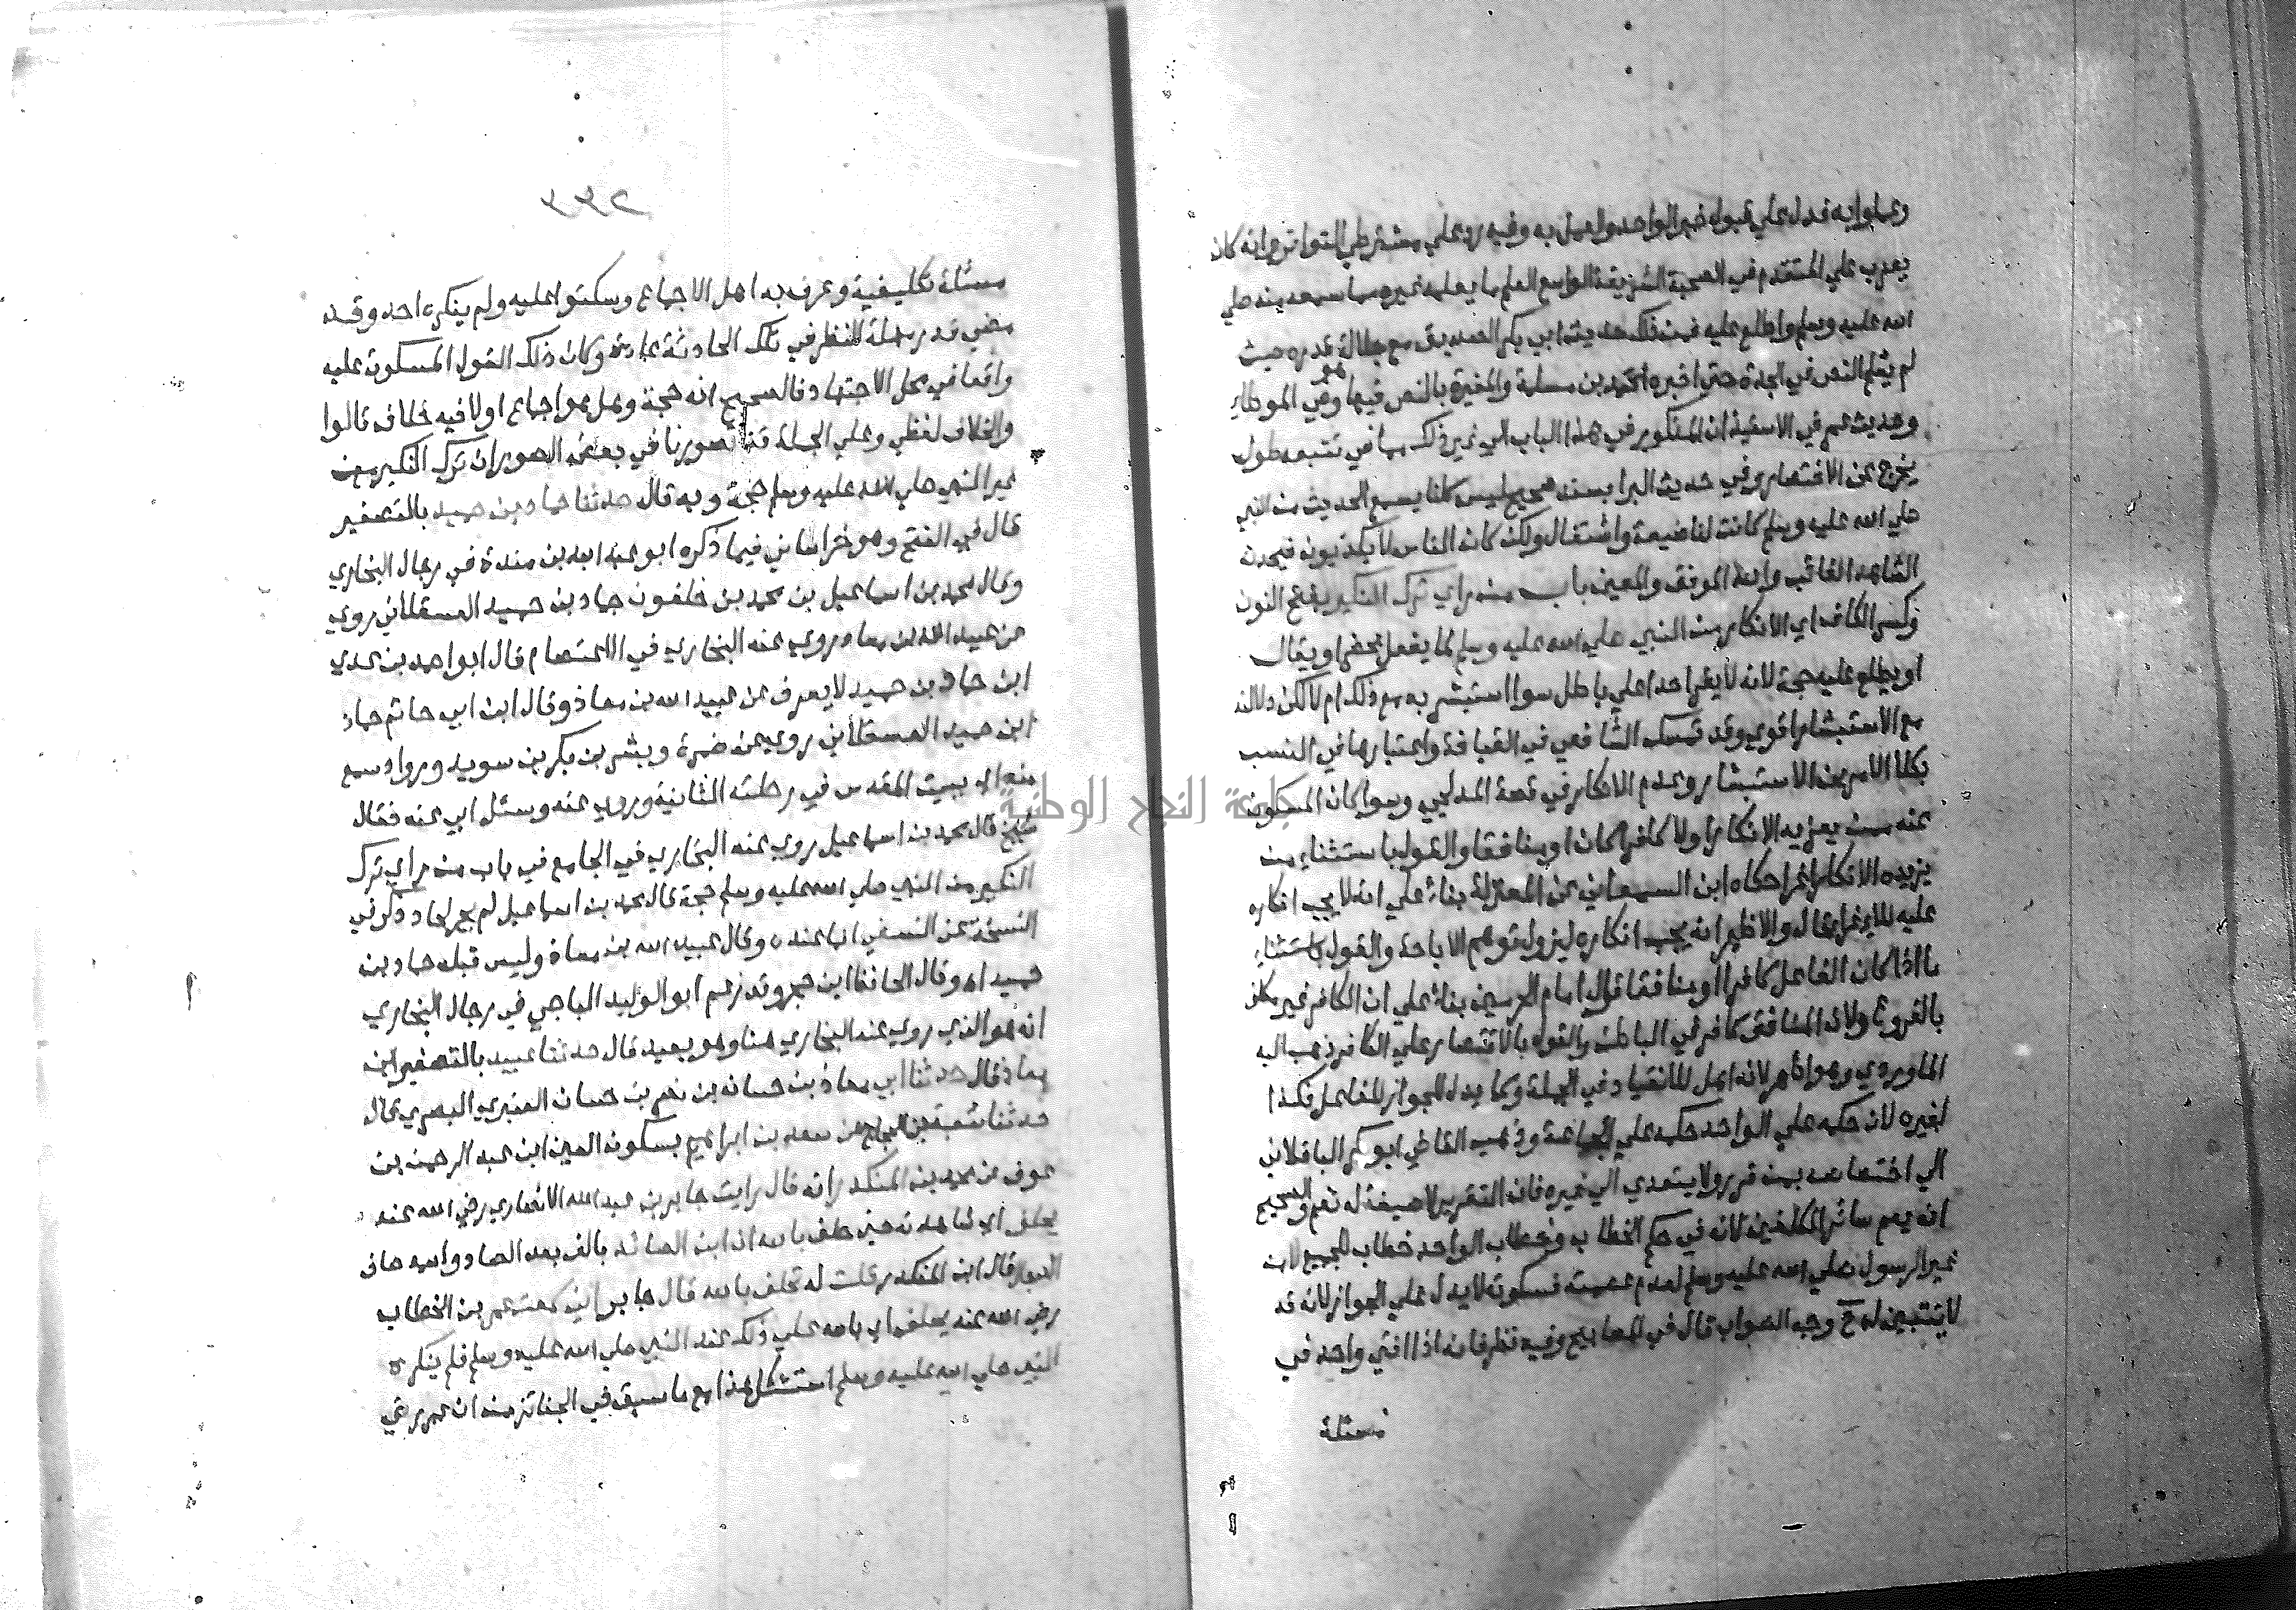 وعملوا به فدل على قبول خبر الواحد والعمل به وفيه رد على مشترطي التواتر وانه كان
يعزب على المتقدم في الصحبة الشريفة الواسع العلم ما يعلمه غيره مما سمعه منه صلى
الله عليه وسلم واطلع عليه فمن ذلك حديث ابي بكر الصديق مع جلالة قدره حيث
لم يعلم النص في الجدة حتى اخبره محمد بن مسلمة والمغيرة بالنص فيها وهو في الموطا
وحديث عمر في الاستيذان المذكور في هذا الباب الى غير ذلك مما في تتبعه طول
يخرج عن الاختصار وفي حديث البرا بسند صحيح ليس كلنا يسمع الحديث من النبي
صلى الله عليه وسلم كانت لنا ضيعة واشتغال ولكن كان الناس لا يكذبون فيحدث
الشاهد الغائب والله الموفق والمعين باب من راي ترك النكير بفتح النون
وكسر الكاف اي الانكار من النبي صلى الله عليه وسلم لما يفعل بحضرته او يقال
او يطلع عليه حجة لانه لا يقر احدا على باطل سوا استبشر به مع ذلك ام لا لكن دلالته
مع الاستبشار اقوى وقد تمسك الشافعي في القيافة واعتبارها في النسب
بكلا الامرين الاستبشار وعدم الانكار في قصة المدلجي وسوا كان المسكوت
عنه ممن يغريه الانكار او لا كافرا كان او منافقا والقول باستثناء من
يزيده الانكار اغرا حكاه ابن السمعاني عن المعتزلة بناء على انه لا يجب انكاره
عليه للاغراء قال والاظهر انه يجب انكاره ليزول توهم الاباحة والقول باستثناء
ما اذا كان الفاعل كافرا او منافقا قول امام الحرمين بناء على ان الكافر غير مكلف
بالفروع ولان المنافق كافر في الباطن والقول بالاقتصار على الكافر ذهب اليه
الماوردي وهو اظهر لانه اهل للانقياد في الجملة وكما يدل للجواز للفاعل فكذا
لغيره لان حكمه على الواحد حكمه على الجماعة وذهب القاضي ابو بكر الباقلاني
الى اختصاصه بمن قرر ولا يتعدى الى غيره فان التقرير لا صيغة له تعم والصحيح
انه يعم سائر المكلفين لانه في حكم الخطاب وخطاب الواحد خطاب للجميع لان
غير الرسول صلى الله عليه وسلم لعدم عصمته فسكوته لا يدل على الجواز لانه قد
لا يتبين له ح وجه الصواب قال في المصابيح وفيه نظر فانه اذا افتى واحد في
مسئلة
٢٣٣
مسئلة تكليفية وعرف به اهل الاجماع وسكتوا عليه ولم ينكره احد وقد
مضى قدر مهلة النظر في تلك الحادثة عادة وكان ذلك القول المسكوت عليه
واقعا في محل الاجتهاد فالصحيح انه حجة وهل هو اجماع اولا فيه خلاف قالوا
والخلاف لفظي وعلى الجملة قد تصورنا في بعض الصور ان ترك النكير من
غير النبي صلى الله عليه وسلم حجة وبه قال حدثنا حماد بن حميد بالتصغير
قال في الفتح وهو خراساني فيما ذكره ابو عبد الله بن مندة في رجال البخاري
وقال محمد بن اسماعيل بن محمد بن خلفون حماد بن حميد العسقلاني روى
عن عبيد الله بن معاذ روى عنه البخاري في الاعتصام قال ابو احمد بن عدي
ابن حماد بن حميد لا يعرف عن عبيد الله بن معاذ وقال ابن ابي حاتم حماد
ابن حميد العسقلاني روى عن ضمرة وبشر بن بكر بن سويد ورواد سمع
منه ابي ببيت المقدس في رحلته الثانية وروى عنه وسئل ابي عنه فقال
شيخ قال محمد بن اسماعيل روى عنه البخاري في الجامع في باب من راي ترك
النكير من النبي صلى الله عليه وسلم حجة قال محمد بن اسماعيل لم يجر لحماد ذكر في
النسخة عن النسفي انما عنده وقال عبيد الله بن معاذ وليس قبله حماد بن
حميد اه وقال الحافظ ابن حجر وقد زعم ابو الوليد الباجي في رجال البخاري
انه هو الذي روى عنه البخاري هنا وهو بعيد قال حدثنا عبيد بالتصغير ابن
معاذ قال حدثنا ابي معاذ بن حسان بن نصر بن حسان العنبري البصري قال
حدثنا شعبة بن الحجاج عن سعد بن ابراهيم بسكون العين ابن عبد الرحمن بن
عوف عن محمد بن المنكدر انه قال رايت جابر بن عبد الله الانصاري رضي الله عنه
يحلف اي شاهدته حين حلف بالله ان ابن الصائد بالف بعد الصاد واسمه صاف
الدجال قال ابن المنكدر قلت له تحلف بالله قال جابر اني سمعت عمر بن الخطاب
رضي الله عنه يحلف اي بالله على ذلك عند النبي صلى الله عليه وسلم فلم ينكره
النبي صلى الله عليه وسلم استشكل هذا مع ما سبق في الجنائز من ان عمر رضي
جامعة النجاح الوطنية